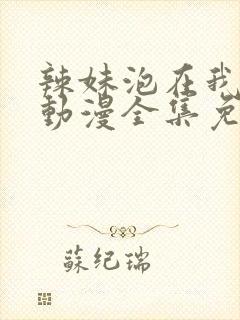 辣妹泡在我
動漫全集免
蘇紀瑞